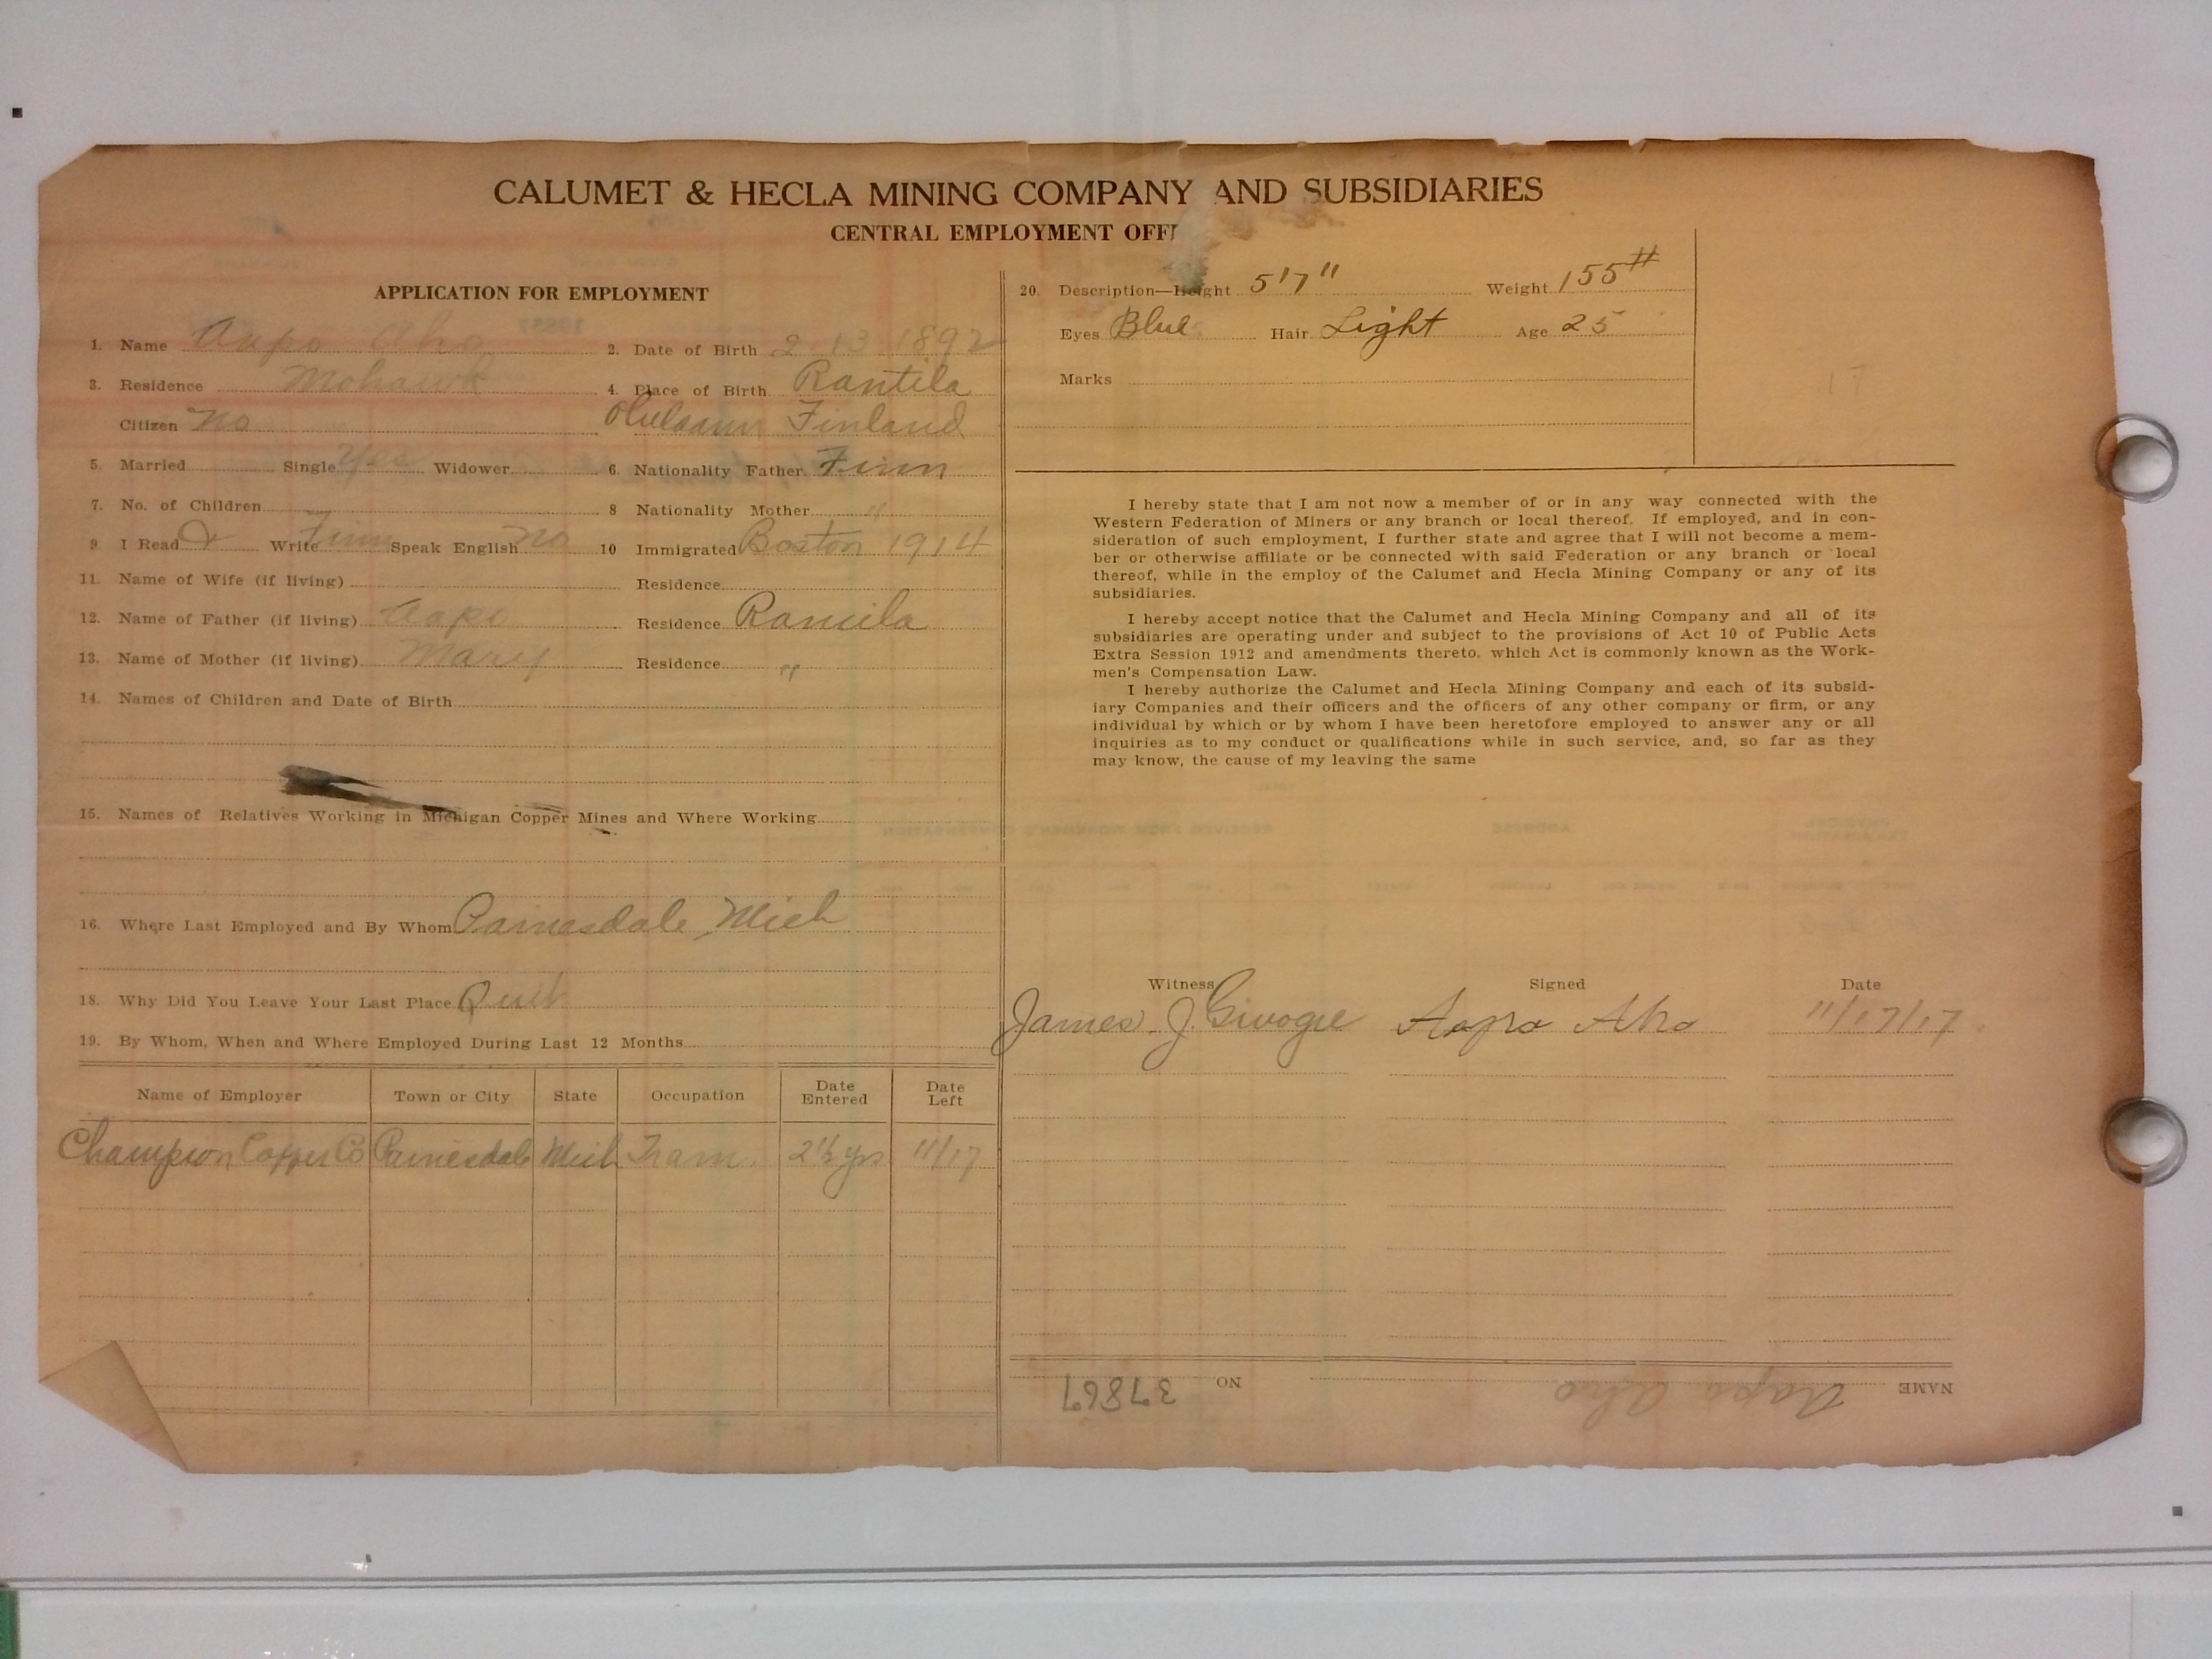 CALUMET & HECLA MINING COMPANY AND SUBSIDIARIES
CENTRAL EMPLOYMENT OFFI
APPLICATION FOR EMPLOYMENT
1. Name Aapo Aho 2. Date of Birth 2 13 1892
3. Residence Mohawk 4. Place of Birth Rantila
Citizen No Finland
5. Married Single Yes Widower 6. Nationality Father Finn
7. No. of Children 8 Nationality Mother "
9. I Read & Write Finn Speak English No 10 Immigrated Boston 1914
11. Name of Wife (if living) Residence
12. Name of Father (if living) Aapo Residence
13. Name of Mother (if living) Mary Residence "
14. Names of Children and Date of Birth
15. Names of Relatives Working in Michigan Copper Mines and Where Working
16. Where Last Employed and By Whom Painesdale, Mich
18. Why Did You Leave Your Last Place Quit
19. By Whom, When and Where Employed During Last 12 Months
Name of Employer Town or City State Occupation Date Entered Date Left
Champion Copper Co Painesdale Mich Tram 2½ yrs 11/17
20. Description—Height 5'7" Weight 155#
Eyes Blue Hair Light Age 25
Marks
17
I hereby state that I am not now a member of or in any way connected with the
Western Federation of Miners or any branch or local thereof. If employed, and in con-
sideration of such employment, I further state and agree that I will not become a mem-
ber or otherwise affiliate or be connected with said Federation or any branch or local
thereof, while in the employ of the Calumet and Hecla Mining Company or any of its
subsidiaries.
I hereby accept notice that the Calumet and Hecla Mining Company and all of its
subsidiaries are operating under and subject to the provisions of Act 10 of Public Acts
Extra Session 1912 and amendments thereto, which Act is commonly known as the Work-
men's Compensation Law.
I hereby authorize the Calumet and Hecla Mining Company and each of its subsid-
iary Companies and their officers and the officers of any other company or firm, or any
individual by which or by whom I have been heretofore employed to answer any or all
inquiries as to my conduct or qualifications while in such service, and, so far as they
may know, the cause of my leaving the same
Witness Signed Date
James J. Aapo Aho 11/17/17
NAME Aapo Aho NO 37867